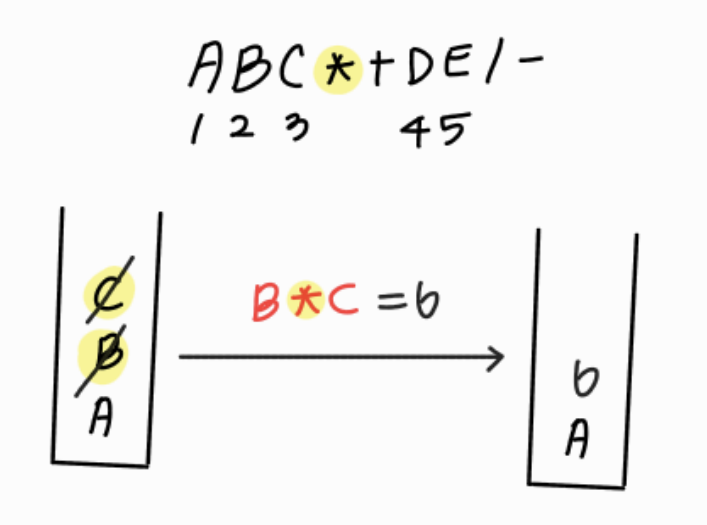 ABC*+DE/-
1 2 3 4 5
C
B
A
B*C=6
6
A